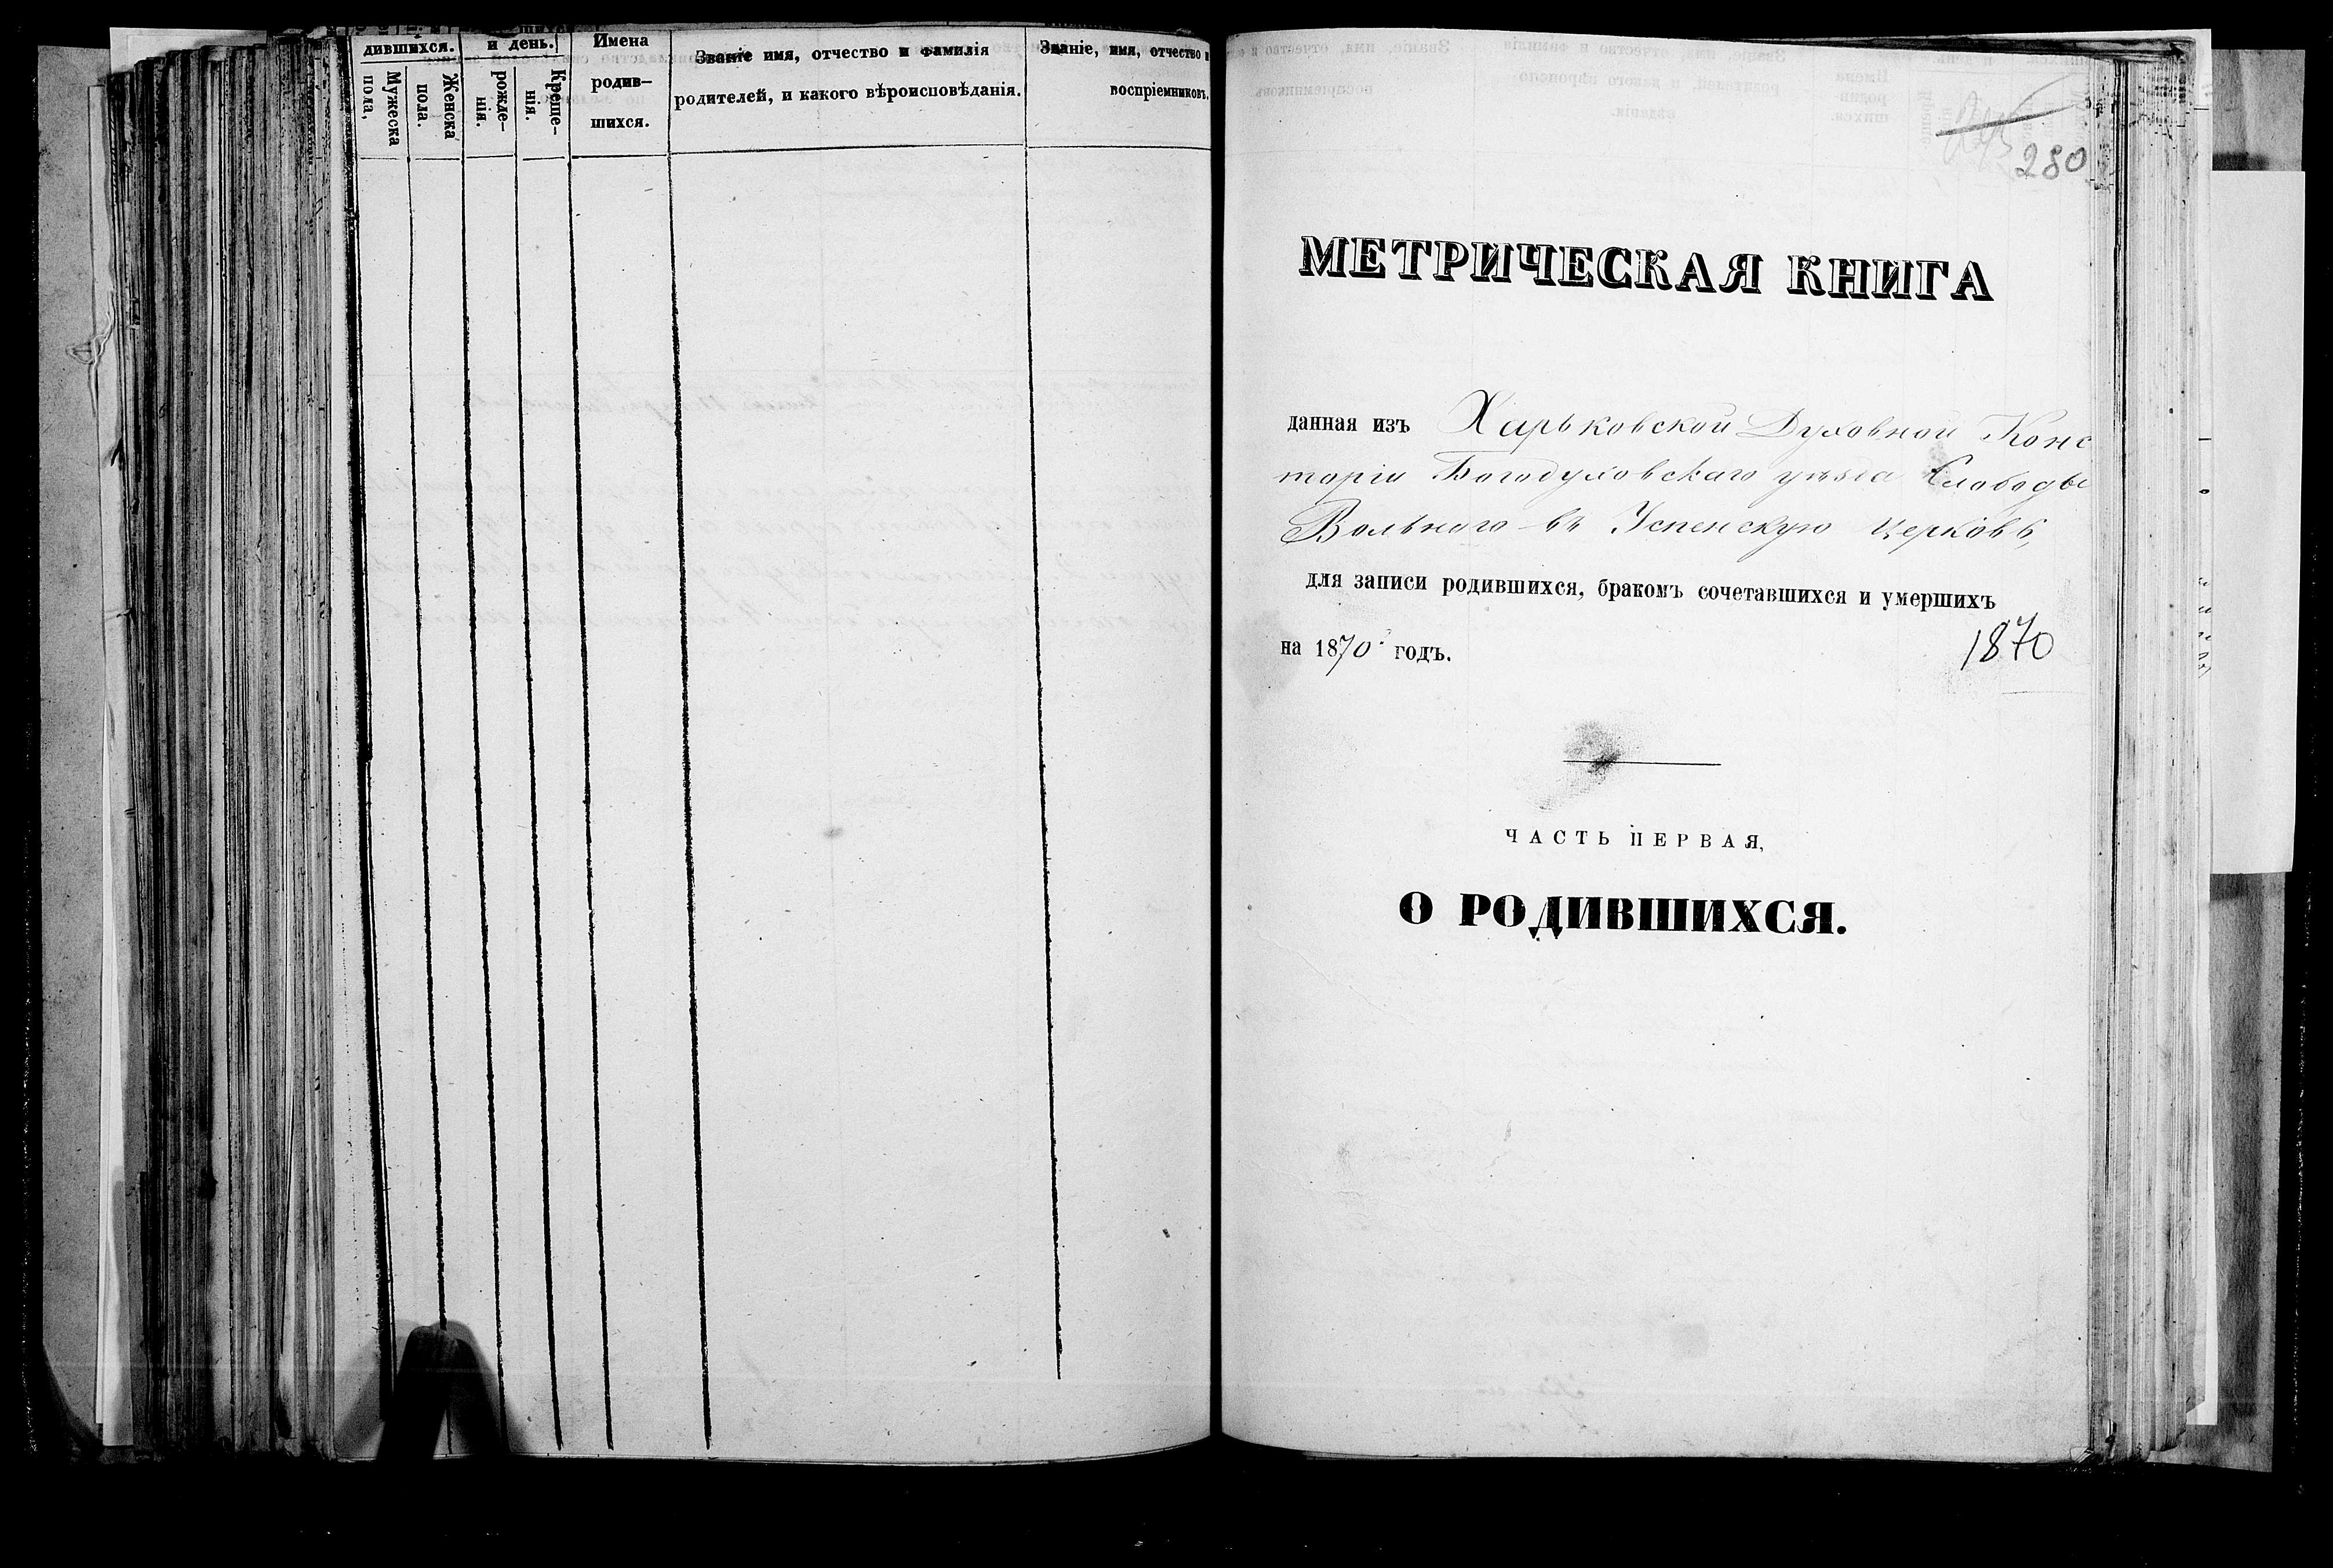 дившихся.
и день.
Мужеска
пола,
Женска
пола.
рожде-
нія.
Креще-
нія.
Имена
родив-
шихся.
Званіе имя, отчество и фамилія
родителей, и какого вѣроисповѣданія.
Званіе, имя, отчество и
воспріемниковъ.
280
МЕТРИЧЕСКАЯ КНИГА
данная изъ Харьковской Духовной Конс
торіи Богодуховскаго уѣзда Слободы
Вольного въ Успенскую Церковь,
для записи родившихся, бракомъ сочетавшихся и умершихъ
на 1870 годъ.
1870
ЧАСТЬ ПЕРВАЯ,
О РОДИВШИХСЯ.